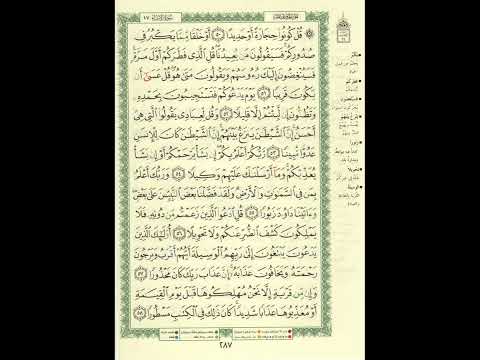 ١٧
۞ قُلْ كُونُوا۟ حِجَارَةً أَوْ حَدِيدًا ۝٥٠ أَوْ خَلْقًا مِّمَّا يَكْبُرُ فِى
صُدُورِكُمْ فَسَيَقُولُونَ مَن يُعِيدُنَا قُلِ ٱلَّذِى فَطَرَكُمْ أَوَّلَ مَرَّةٍ
فَسَيُنْغِضُونَ إِلَيْكَ رُءُوسَهُمْ وَيَقُولُونَ مَتَىٰ هُوَ قُلْ عَسَىٰٓ أَن
يَكُونَ قَرِيبًا ۝٥١ يَوْمَ يَدْعُوكُمْ فَتَسْتَجِيبُونَ بِحَمْدِهِۦ
وَتَظُنُّونَ إِن لَّبِثْتُمْ إِلَّا قَلِيلًا ۝٥٢ وَقُل لِّعِبَادِى يَقُولُوا۟ ٱلَّتِى هِىَ
أَحْسَنُ إِنَّ ٱلشَّيْطَـٰنَ يَنزَغُ بَيْنَهُمْ إِنَّ ٱلشَّيْطَـٰنَ كَانَ لِلْإِنسَـٰنِ
عَدُوًّا مُّبِينًا ۝٥٣ رَّبُّكُمْ أَعْلَمُ بِكُمْ إِن يَشَأْ يَرْحَمْكُمْ أَوْ إِن يَشَأْ
يُعَذِّبْكُمْ وَمَآ أَرْسَلْنَـٰكَ عَلَيْهِمْ وَكِيلًا ۝٥٤ وَرَبُّكَ أَعْلَمُ
بِمَن فِى ٱلسَّمَـٰوَٰتِ وَٱلْأَرْضِ وَلَقَدْ فَضَّلْنَا بَعْضَ ٱلنَّبِيِّـۧنَ عَلَىٰ بَعْضٍ
وَءَاتَيْنَا دَاوُۥدَ زَبُورًا ۝٥٥ قُلِ ٱدْعُوا۟ ٱلَّذِينَ زَعَمْتُم مِّن دُونِهِۦ فَلَا
يَمْلِكُونَ كَشْفَ ٱلضُّرِّ عَنكُمْ وَلَا تَحْوِيلًا ۝٥٦ أُو۟لَـٰٓئِكَ ٱلَّذِينَ
يَدْعُونَ يَبْتَغُونَ إِلَىٰ رَبِّهِمُ ٱلْوَسِيلَةَ أَيُّهُمْ أَقْرَبُ وَيَرْجُونَ
رَحْمَتَهُۥ وَيَخَافُونَ عَذَابَهُۥٓ إِنَّ عَذَابَ رَبِّكَ كَانَ مَحْذُورًا ۝٥٧
وَإِن مِّن قَرْيَةٍ إِلَّا نَحْنُ مُهْلِكُوهَا قَبْلَ يَوْمِ ٱلْقِيَـٰمَةِ
أَوْ مُعَذِّبُوهَا عَذَابًا شَدِيدًا كَانَ ذَٰلِكَ فِى ٱلْكِتَـٰبِ مَسْطُورًا ۝٥٨
٢٨٧